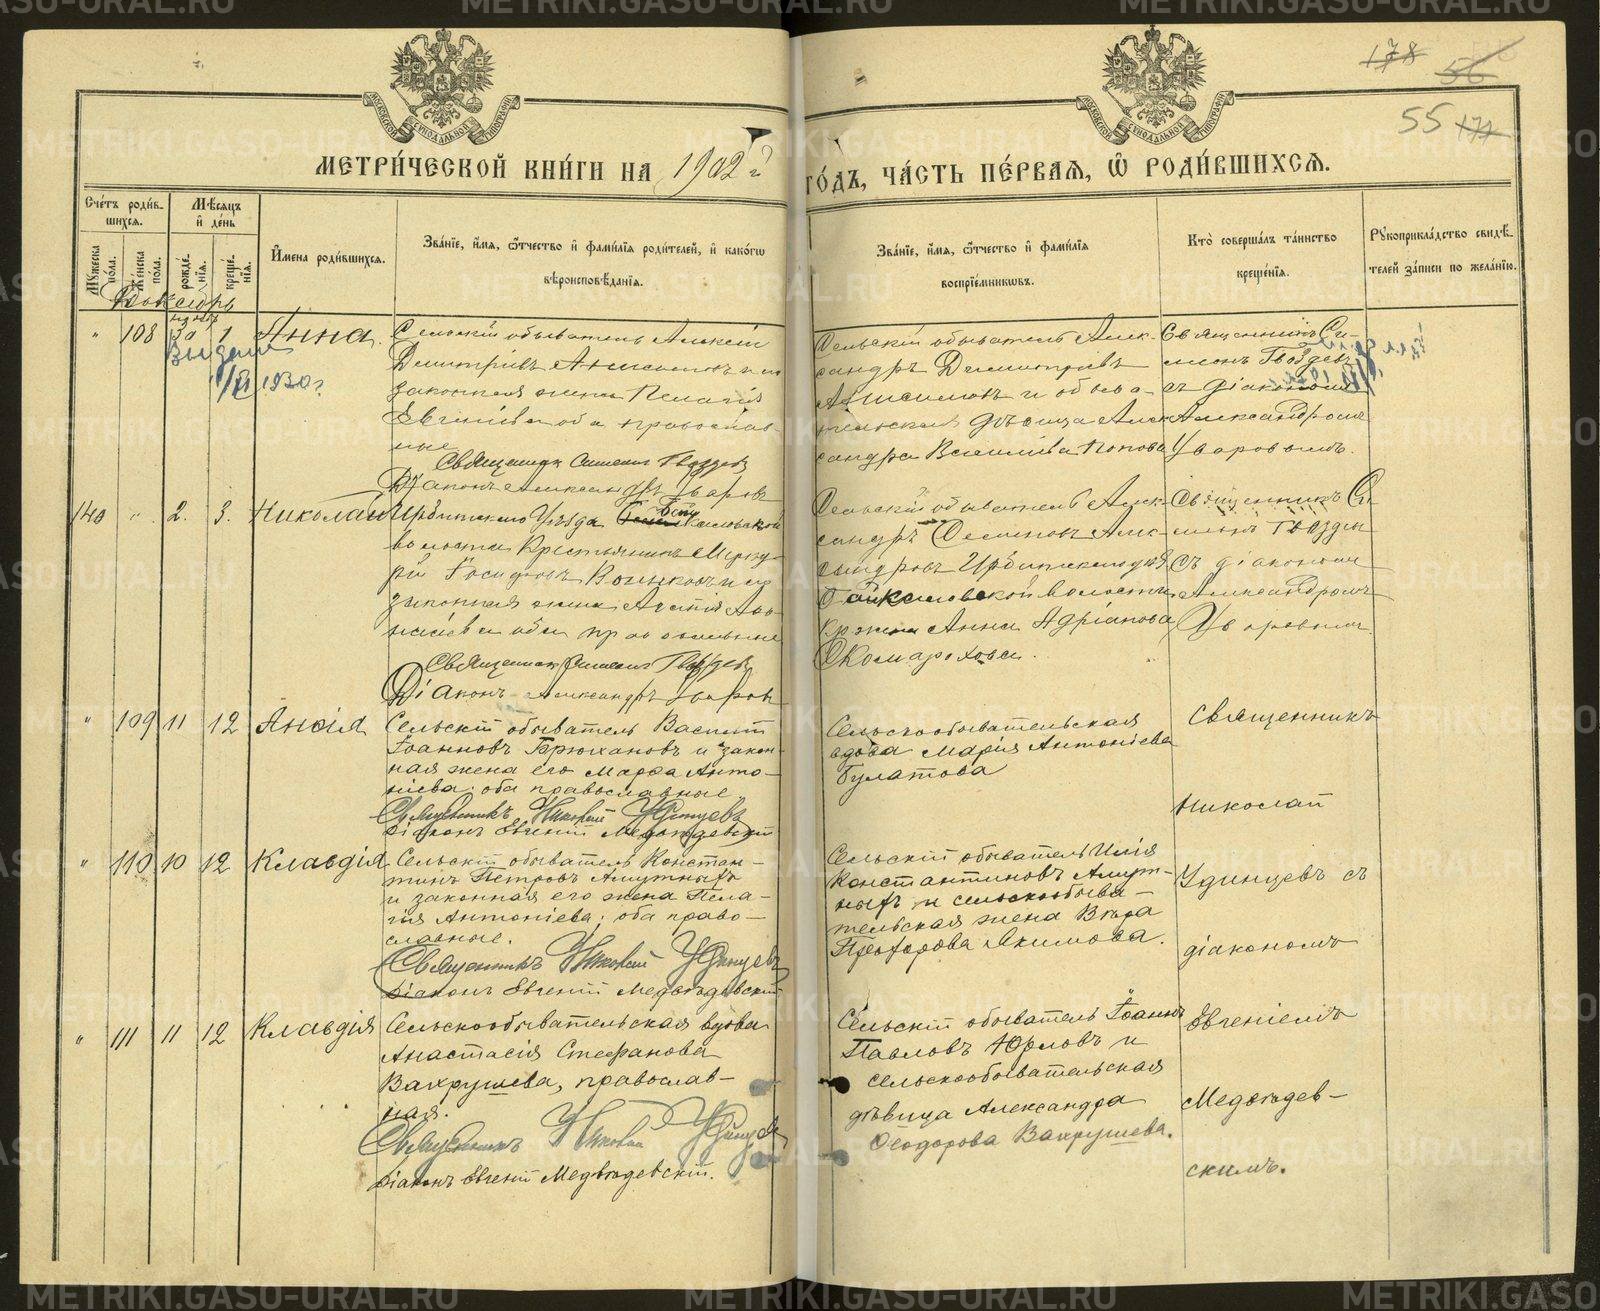 178 56
55 171
МЕТРИ́ЧЕСКОЙ КНИ́ГИ НА 1902 г.
ГО́ДЪ, ЧА́СТЬ ПЕ́РВАѦ, Ѽ РОДИ́ВШИХСѦ.
Сче́тъ роди́в-
шихсѧ.
Мꙋ́жеска по́ла.
Же́нска по́ла.
Мѣ́сѧцъ и҆ де́нь
рожде́нїѧ.
креще́нїѧ.
И҆́мена роди́вшихсѧ.
Зва́нїе, и҆́мѧ, ѻ҆́тчество и҆ фами́лїѧ роди́телей, и҆ како́гѡ
вѣроисповѣ́данїѧ.
Зва́нїе, и҆́мѧ, ѻ҆́тчество и҆ фами́лїѧ
воспрїе́мниковъ.
Кто̀ соверша́лъ та́инство
креще́нїѧ.
Рꙋкоприкла́дство свидѣ́-
телей за́писи по жела́нїю.
108 30 1 Анна.
Выдана
1930 г.
Сельскій обыватель Алексій
Димитріевъ Анисимовъ и его
законная жена Пелагія
Евгеніева оба православ-
ные
Священник Симеон Гвоздев
Діаконъ Александръ Уваровъ
Сельскій обыватель Алек-
сандръ Димитріевъ
Анисимовъ и обыва-
тельская дѣвица Алек-
сандра Васильева Попова
Священникъ Си-
меонъ Гвоздевъ
съ діакономъ
Александромъ
Уваровымъ.
140 " 2. 3. Николай
Ирбитскаго Уѣзда
волости Крестьянинъ Мерку-
рій
законная жена
оба православные
Священник Симеон Гвоздев
Діаконъ Александръ Уваров
Сельскій обыватель Алек-
сандръ Семеновъ Алек-
сандровъ Ирбитскаго уѣз.
волости
Анна Адріанова
Комарохова.
Священникъ Си-
меонъ Гвоздев
съ діакономъ
Александромъ
Уваровымъ.
" 109 11 12 Анѳія
Сельскій обыватель Василій
Іоанновъ Брюхановъ и закон-
ная жена его Марѳа Анто-
ніева; оба православные.
Священникъ Николай Удинцевъ
Діаконъ Евгеній Медвѣдевскій
Сельскообывательская
вдова Марія Антоніева
Булатова
Священникъ
Николай
Удинцевъ съ
діакономъ
Евгеніемъ
Медвѣдев-
скимъ.
" 110 10 12 Клавдія
Сельскій обыватель Констан-
тинъ Петровъ Ламутныхъ
и законная его жена Пела-
гія Антоніева; оба право-
славные.
Священникъ Николай Удинцевъ
Діаконъ Евгеній Медвѣдевскій
Сельскій обыватель Илія
Константиновъ
и сельскообыва-
тельская жена Вѣра
Прохорова Якимова.
" 111 11 12 Клавдія
Сельскообывательская вдова
Анастасія Стефанова
Вахрушева, православ-
ная.
Священникъ Николай Удинцев
Діаконъ Евгеній Медвѣдевскій.
Сельскій обыватель Іоаннъ
Павловъ Юрловъ и
сельскообывательская
дѣвица Александра
Ѳеодорова Вахрушева.
METRIKI.GASO-URAL.RU